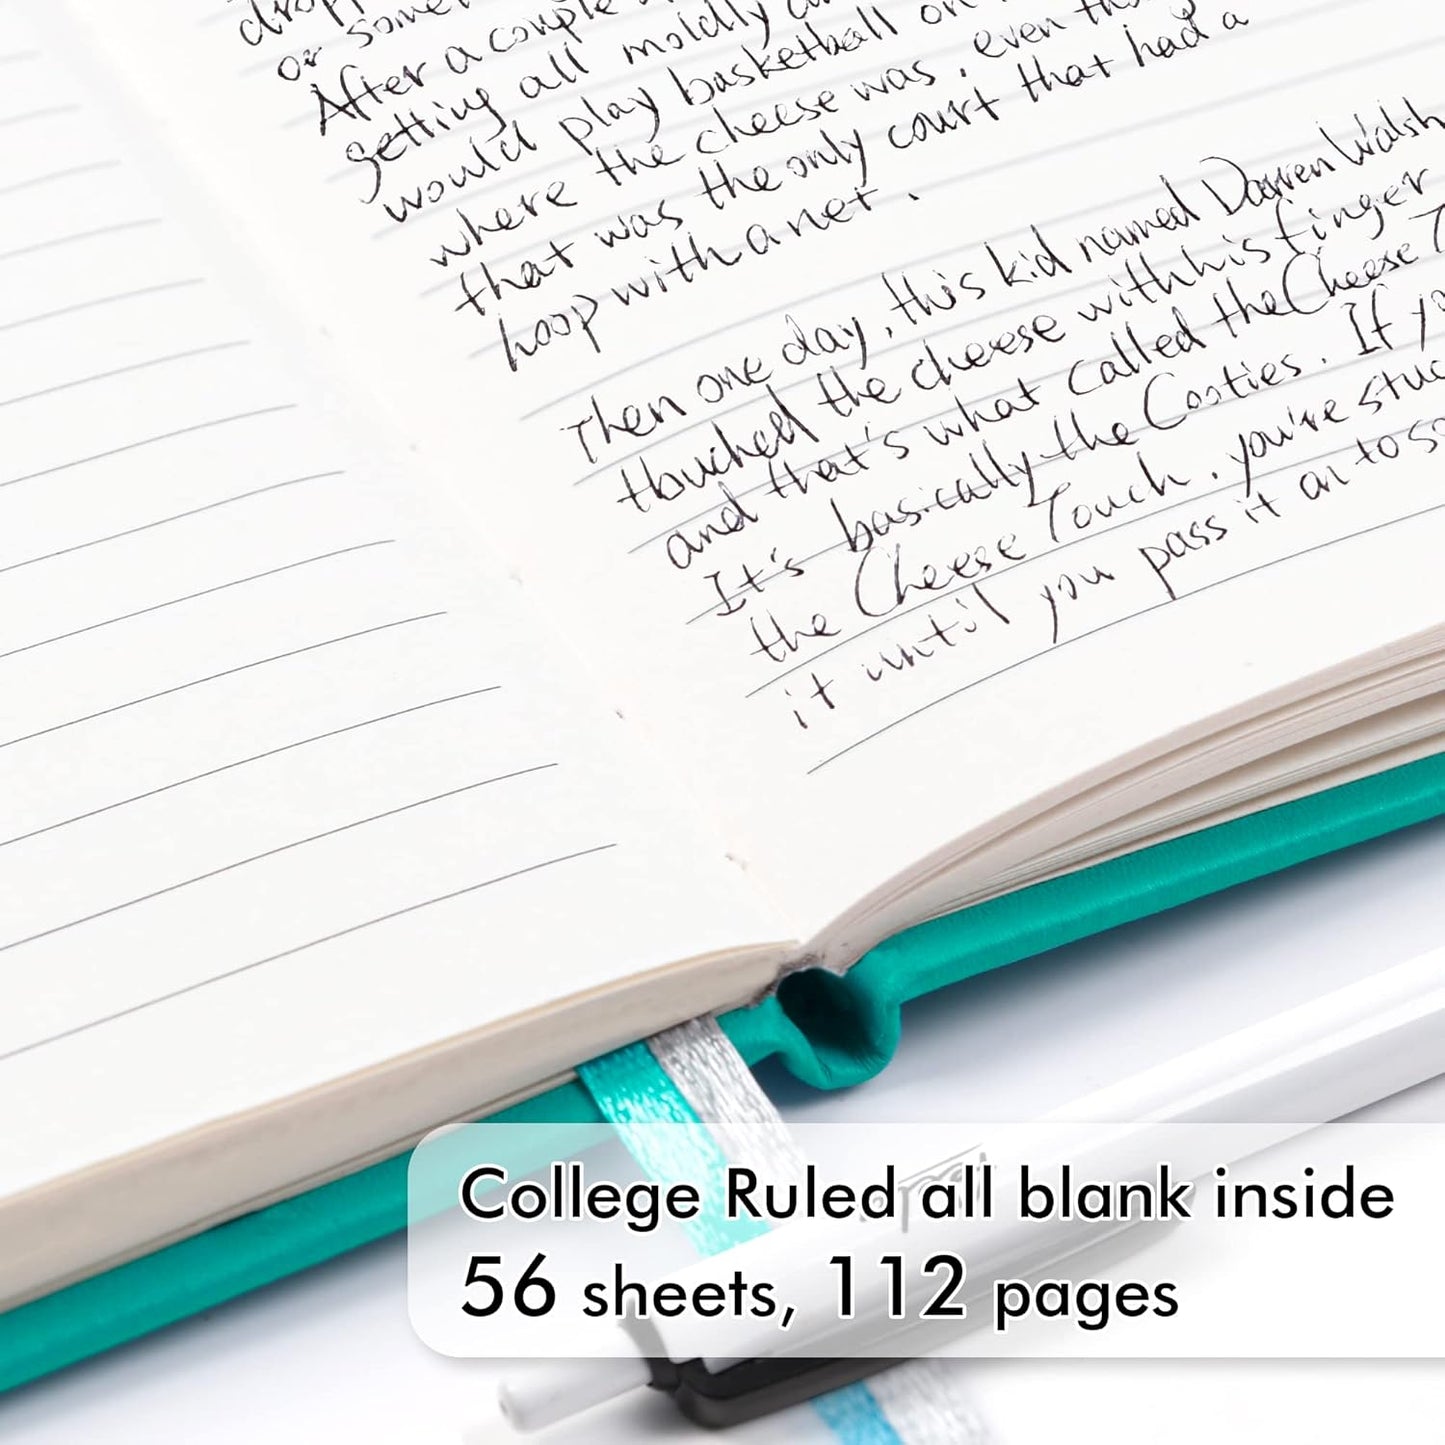 or
After a couple
getting all moldly
would play basketball on
where the cheese was, even
that was the only court that had a
hoop with a net.
Then one day, this kid named Darren Walsh
touched the cheese with his finger
and that's what called the Cheese
It's basically the Cooties. If
the Cheese Touch. you're
it until you pass it on to
College Ruled all blank inside
56 sheets, 112 pages